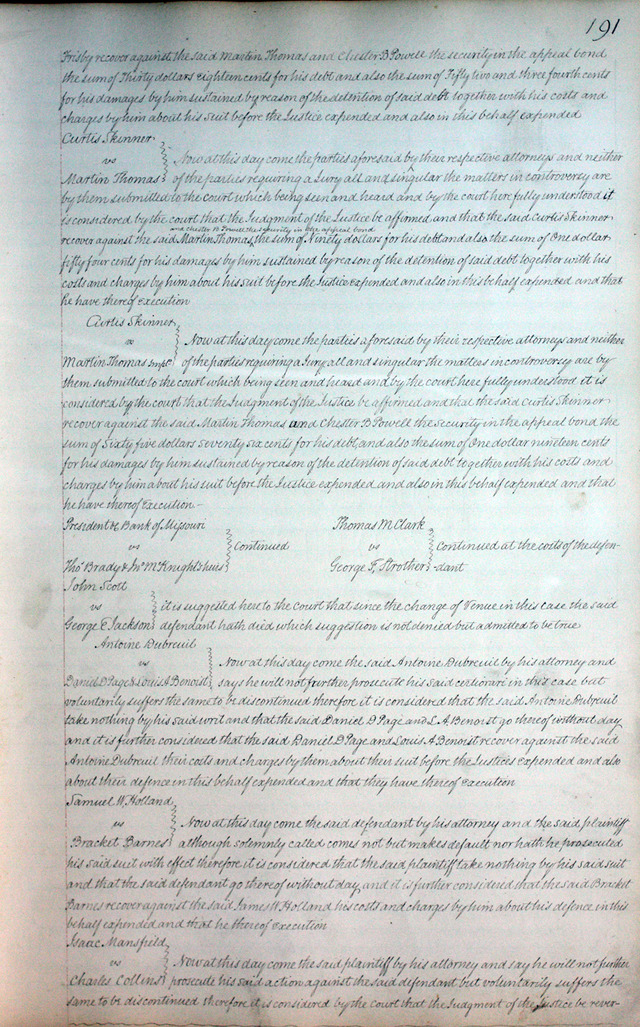 191
Frisby recover against the said Martin Thomas and Chester B Powell the security in the appeal bond
the sum of Thirty dollars eighteen cents for his debt and also the sum of Fifty two and three fourth cents
for his damages by him sustained by reason of the detention of said debt together with his costs and
charges by him about his suit before the Justice expended and also in this behalf expended
Curtis Skinner
vs Now at this day come the parties aforesaid by their respective attorneys and neither
Martin Thomas of the parties requiring a Jury all and singular the matters in controversy are
by them submitted to the court which being seen and heard and by the court here fully understood it
is considered by the court that the Judgment of the Justice be affirmed and that the said Curtis Skinner
and Chester B Powell the security in the appeal bond
recover against the said Martin Thomas, the sum of Ninety dollars for his debt and also the sum of One dollar
fifty four cents for his damages by him sustained by reason of the detention of said debt together with his
costs and charges by him about his suit before the Justice expended and also in this behalf expended and that
he have thereof execution
Curtis Skinner
vs Now at this day come the parties aforesaid by their respective attorneys and neither
Martin Thomas of the parties requiring a Jury all and singular the matters in controversy are by
them submitted to the court which being seen and heard and by the court here fully understood it is
considered by the court that the Judgment of the Justice be affirmed and that the said Curtis Skinner
recover against the said Martin Thomas and Chester B Powell the security in the appeal bond the
sum of Sixty five dollars seventy six cents for his debt, and also the sum of One dollar nineteen cents
for his damages by him sustained by reason of the detention of said debt together with his costs and
charges by him about his suit before the Justice expended and also in this behalf expended and that
he have thereof execution.-
President & Bank of Missouri Thomas M Clark
vs Continued vs Continued at the costs of the defen-
Thos Brady & Jno McKnights George F. Strother dant
John Scott
vs it is suggested here to the court that since the change of Venue in this case the said
George E Jackson defendant hath died which suggestion is not denied but admitted to be true
Antoine Dubreuil
vs Now at this day come the said Antoine Dubreuil by his attorney and
Daniel D Page & Louis A Benoist says he will not further prosecute his said certiorari in this case but
voluntarily suffers the same to be discontinued therefore it is considered that the said Antoine Dubreuil
take nothing by his said writ and that the said Daniel D Page and L. A. Benoist go thereof without day
and it is further considered that the said Daniel D Page and Louis A Benoist recover against the said
Antoine Dubreuil their costs and charges by them about their suit before the Justices expended and also
about their defence in this behalf expended and that they have thereof execution
Samuel W. Holland
vs Now at this day come the said defendant by his attorney and the said plaintiff
Bracket Barnes although solemnly called comes not but makes default nor hath he prosecuted
his said suit with effect therefore it is considered that the said plaintiff take nothing by his said suit
and that the said defendant go thereof without day, and it is further considered that the said Bracket
Barnes recover against the said James W. Holland his costs and charges by him about his defence in this
behalf expended and that he thereof execution
Isaac Mansfield
vs Now at this day come the said plaintiff by his attorney and say he will not further
Charles Collins prosecute his said action against the said defendant but voluntarily suffers the
same to be discontinued therefore it is considered by the court that the Judgment of the Justice be rever-